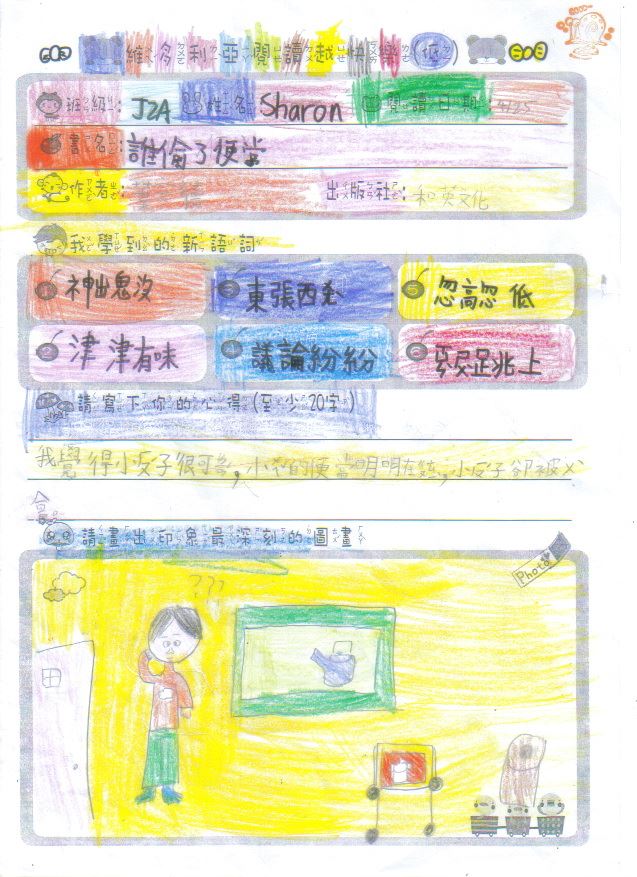 維多利亞閱讀越快樂(低)
班級: J2A 姓名: Sharon 閱讀日期: 9/25
書名: 誰偷了便當
作者: 出版社: 和英文化
我學到的新語詞
1 神出鬼沒 3 東張西望 5 忽高忽低
2 津津有味 4 議論紛紛 6
請寫下你的心得(至少20字)
我覺得小皮子很可 ,小 的便當明明在 ,小皮子卻被
會
請畫出印象最深刻的圖畫
Photo
???